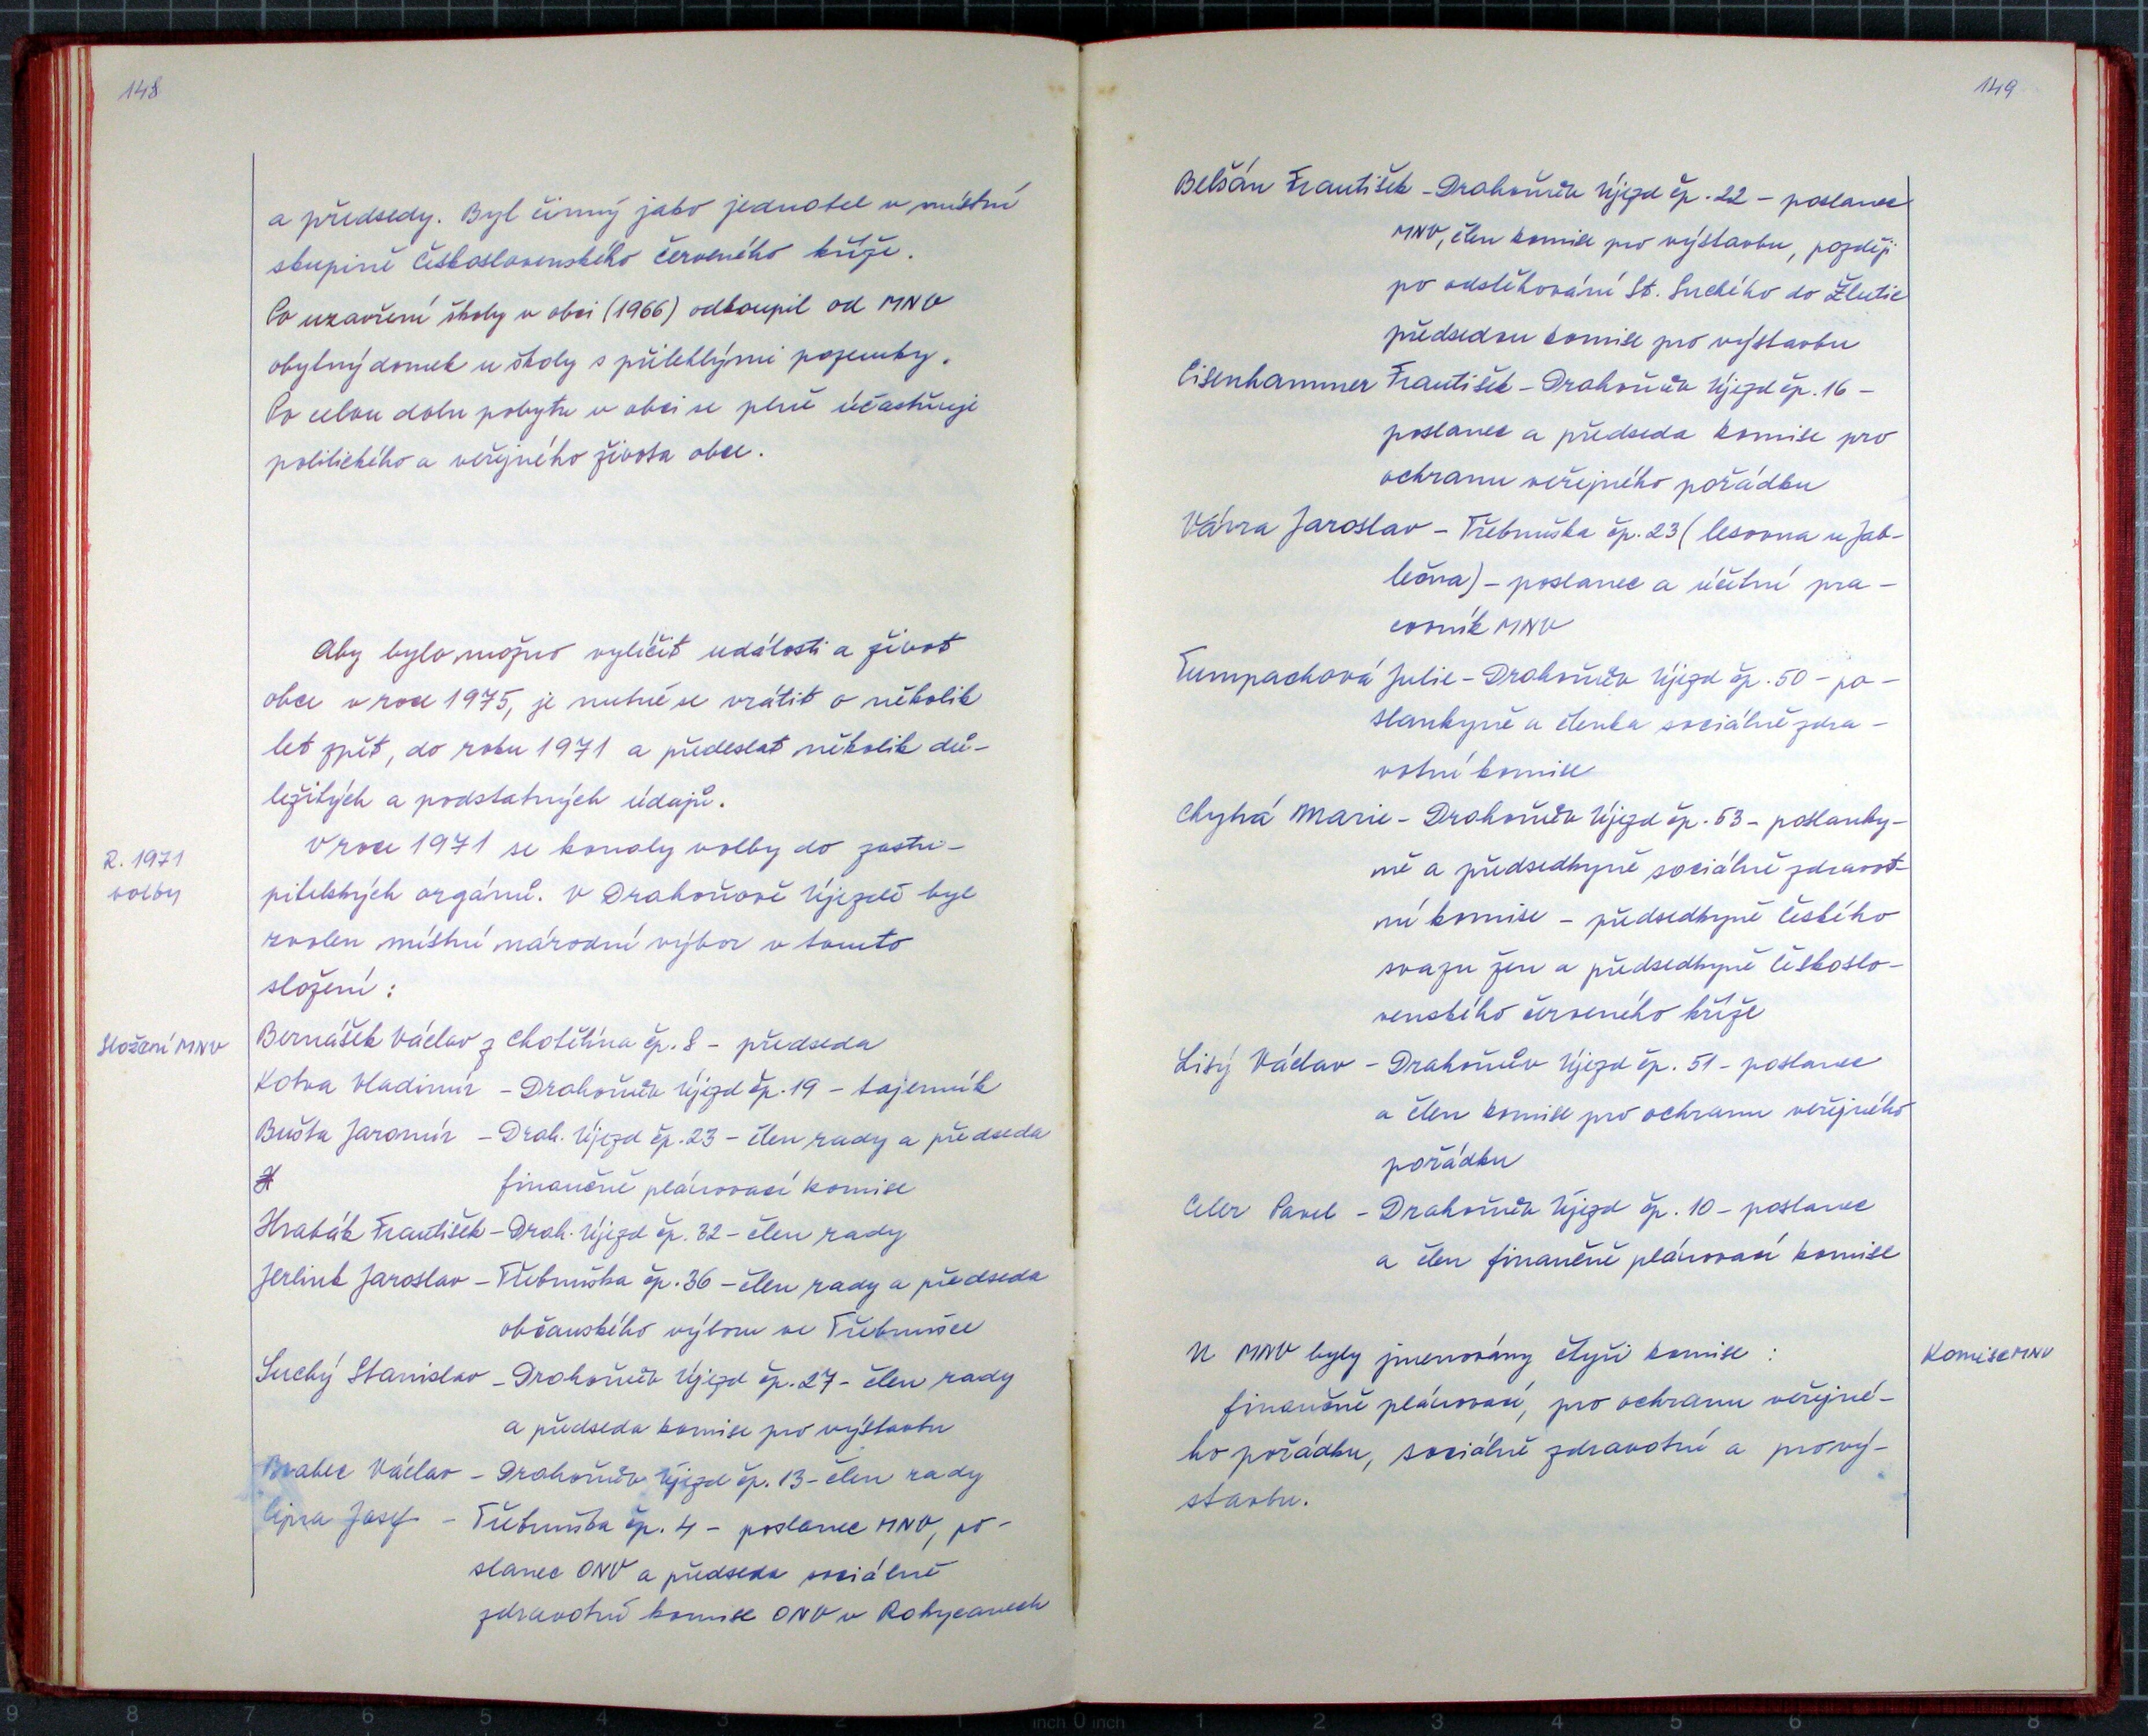 148
a předsedy. Byl činný jako jednatel v místní
skupině Československého červeného kříže.
Po uzavření školy v obci (1966) odkoupil od MNV
obytný domek u školy s přilehlými pozemky.
Po celou dobu pobytu v obci se plně účastňuje
politického a veřejného života obce.
Aby bylo možno vylíčit události a život
obce v roce 1975, je nutné se vrátit o několik
let zpět, do roku 1971 a předeslat několik dů-
ležitých a podstatných údajů.
R. 1971
volby
V roce 1971 se konaly volby do zastu-
pitelských orgánů. V Drahoňově Újezdě byl
zvolen místní národní výbor v tomto
složení:
Složení MNV
Bernášek Václav z Chotětína čp. 8 - předseda
Kotva Vladimír - Drahoňův Újezd čp. 19 - tajemník
Bušta Jaromír - Drah. Újezd čp. 23 - člen rady a předseda
finančně plánovací komise
Hrabák František - Drah. Újezd čp. 32 - člen rady
Jerlink Jaroslav - Třebnuška čp. 36 - člen rady a předseda
občanského výboru ve Třebnušce
Suchý Stanislav - Drahoňův Újezd čp. 27 - člen rady
a předseda komise pro výstavbu
Brabec Václav - Drahoňův Újezd čp. 13 - člen rady
Cipra Josef - Třebnuška čp. 4 - poslanec MNV, po-
slanec ONV a předseda sociálně
zdravotní komise ONV v Rokycanech
149
Belšán František - Drahoňův Újezd čp. 22 - poslanec
MNV, člen komise pro výstavbu, později
po odstěhování St. Suchého do Žlutic
předsedou komise pro výstavbu
Eisenhammer František - Drahoňův Újezd čp. 16 -
poslanec a předseda komise pro
ochranu veřejného pořádku
Vávra Jaroslav - Třebnuška čp. 23 (lesovna u Jab-
lečna) - poslanec a účetní pra-
covník MNV
Tumpachová Julie - Drahoňův Újezd čp. 50 - po-
slankyně a členka sociálně zdra-
votní komise
Chytrá Marie - Drahoňův Újezd čp. 53 - poslanky-
ně a předsedkyně sociálně zdravot-
ní komise - předsedkyně Českého
svazu žen a předsedkyně Českoslo-
venského červeného kříže
Lisý Václav - Drahoňův Újezd čp. 51 - poslanec
a člen komise pro ochranu veřejného
pořádku
Celer Pavel - Drahoňův Újezd čp. 10 - poslanec
a člen finančně plánovací komise
U MNV byly jmenovány čtyři komise:
Komise MNV
finančně plánovací, pro ochranu veřejné-
ho pořádku, sociálně zdravotní a pro vý-
stavbu.